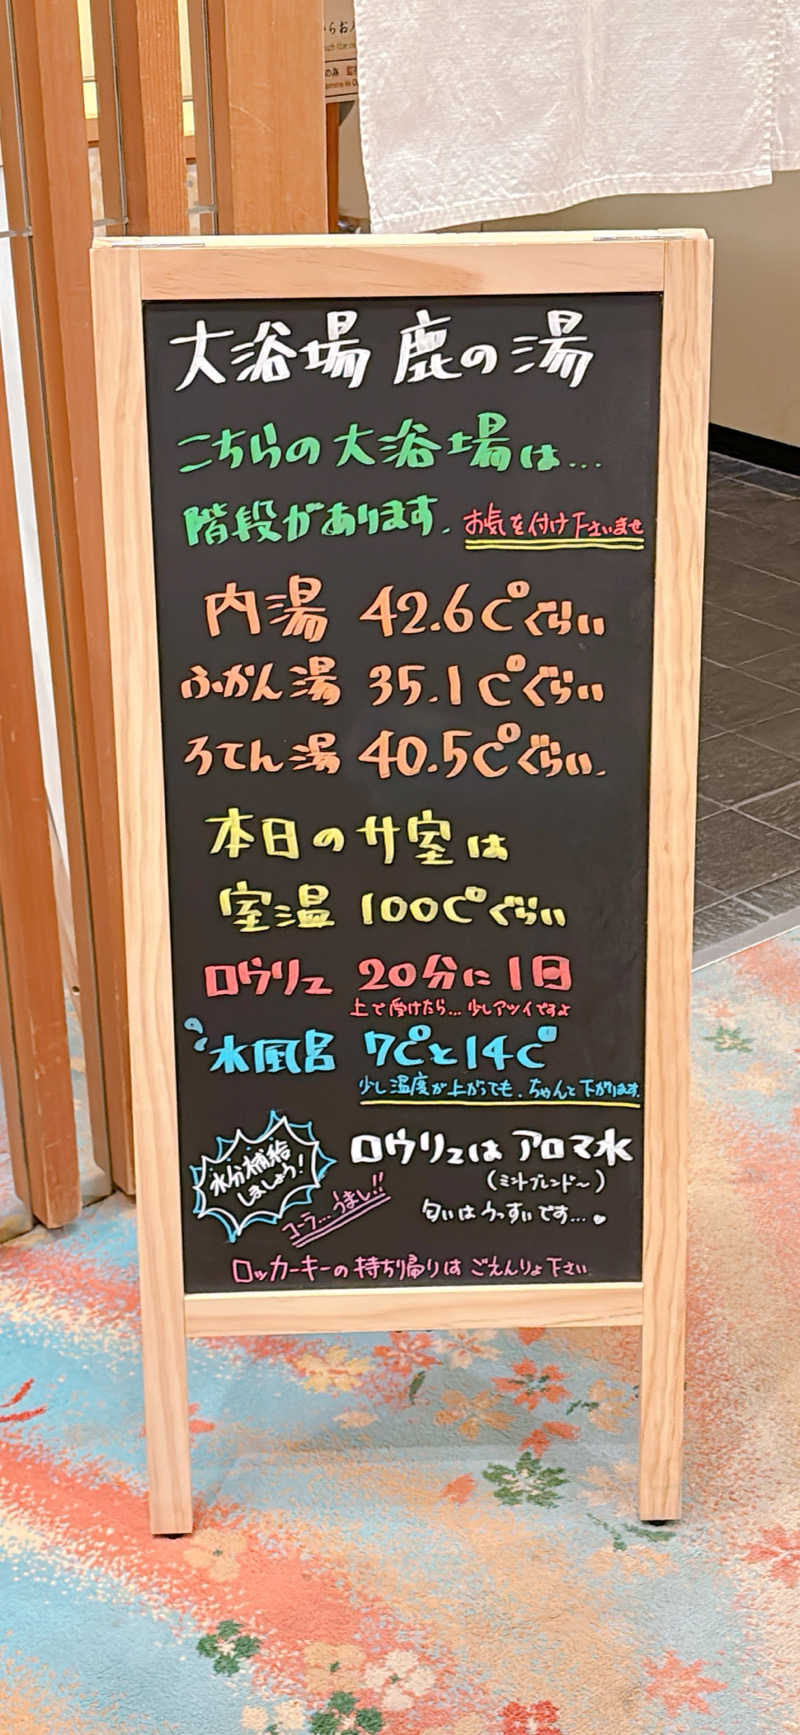 大浴場 鹿の湯
こちらの大浴場は...
階段があります。お気を付け下さいませ
内湯 42.6℃ぐらい
ふかん湯 35.1℃ぐらい
ろてん湯 40.5℃ぐらい.
本日のサ室は
室温 100℃ぐらい
ロウリュ 20分に1回
上で受けたら...少しアツイですよ
水風呂 7℃と14℃
少し温度が上がっても、ちゃんと下がります。
水分補給
しましょう!
コーラ...うまし!!
ロウリュはアロマ水
(ミントブレンド〜)
匂いはうっすいです...
ロッカーキーの持ち帰りはごえんりょ下さい